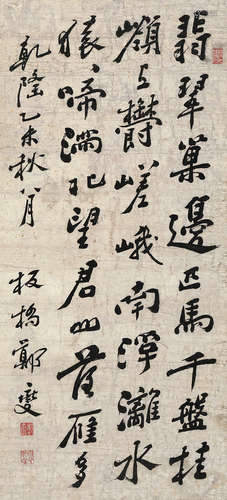 翡翠巢邊匹馬千盤桂
嶺欝嵯峨南浮灕水
猿啼滿北望君山落雁多
乾隆乙未秋八月 板橋鄭燮